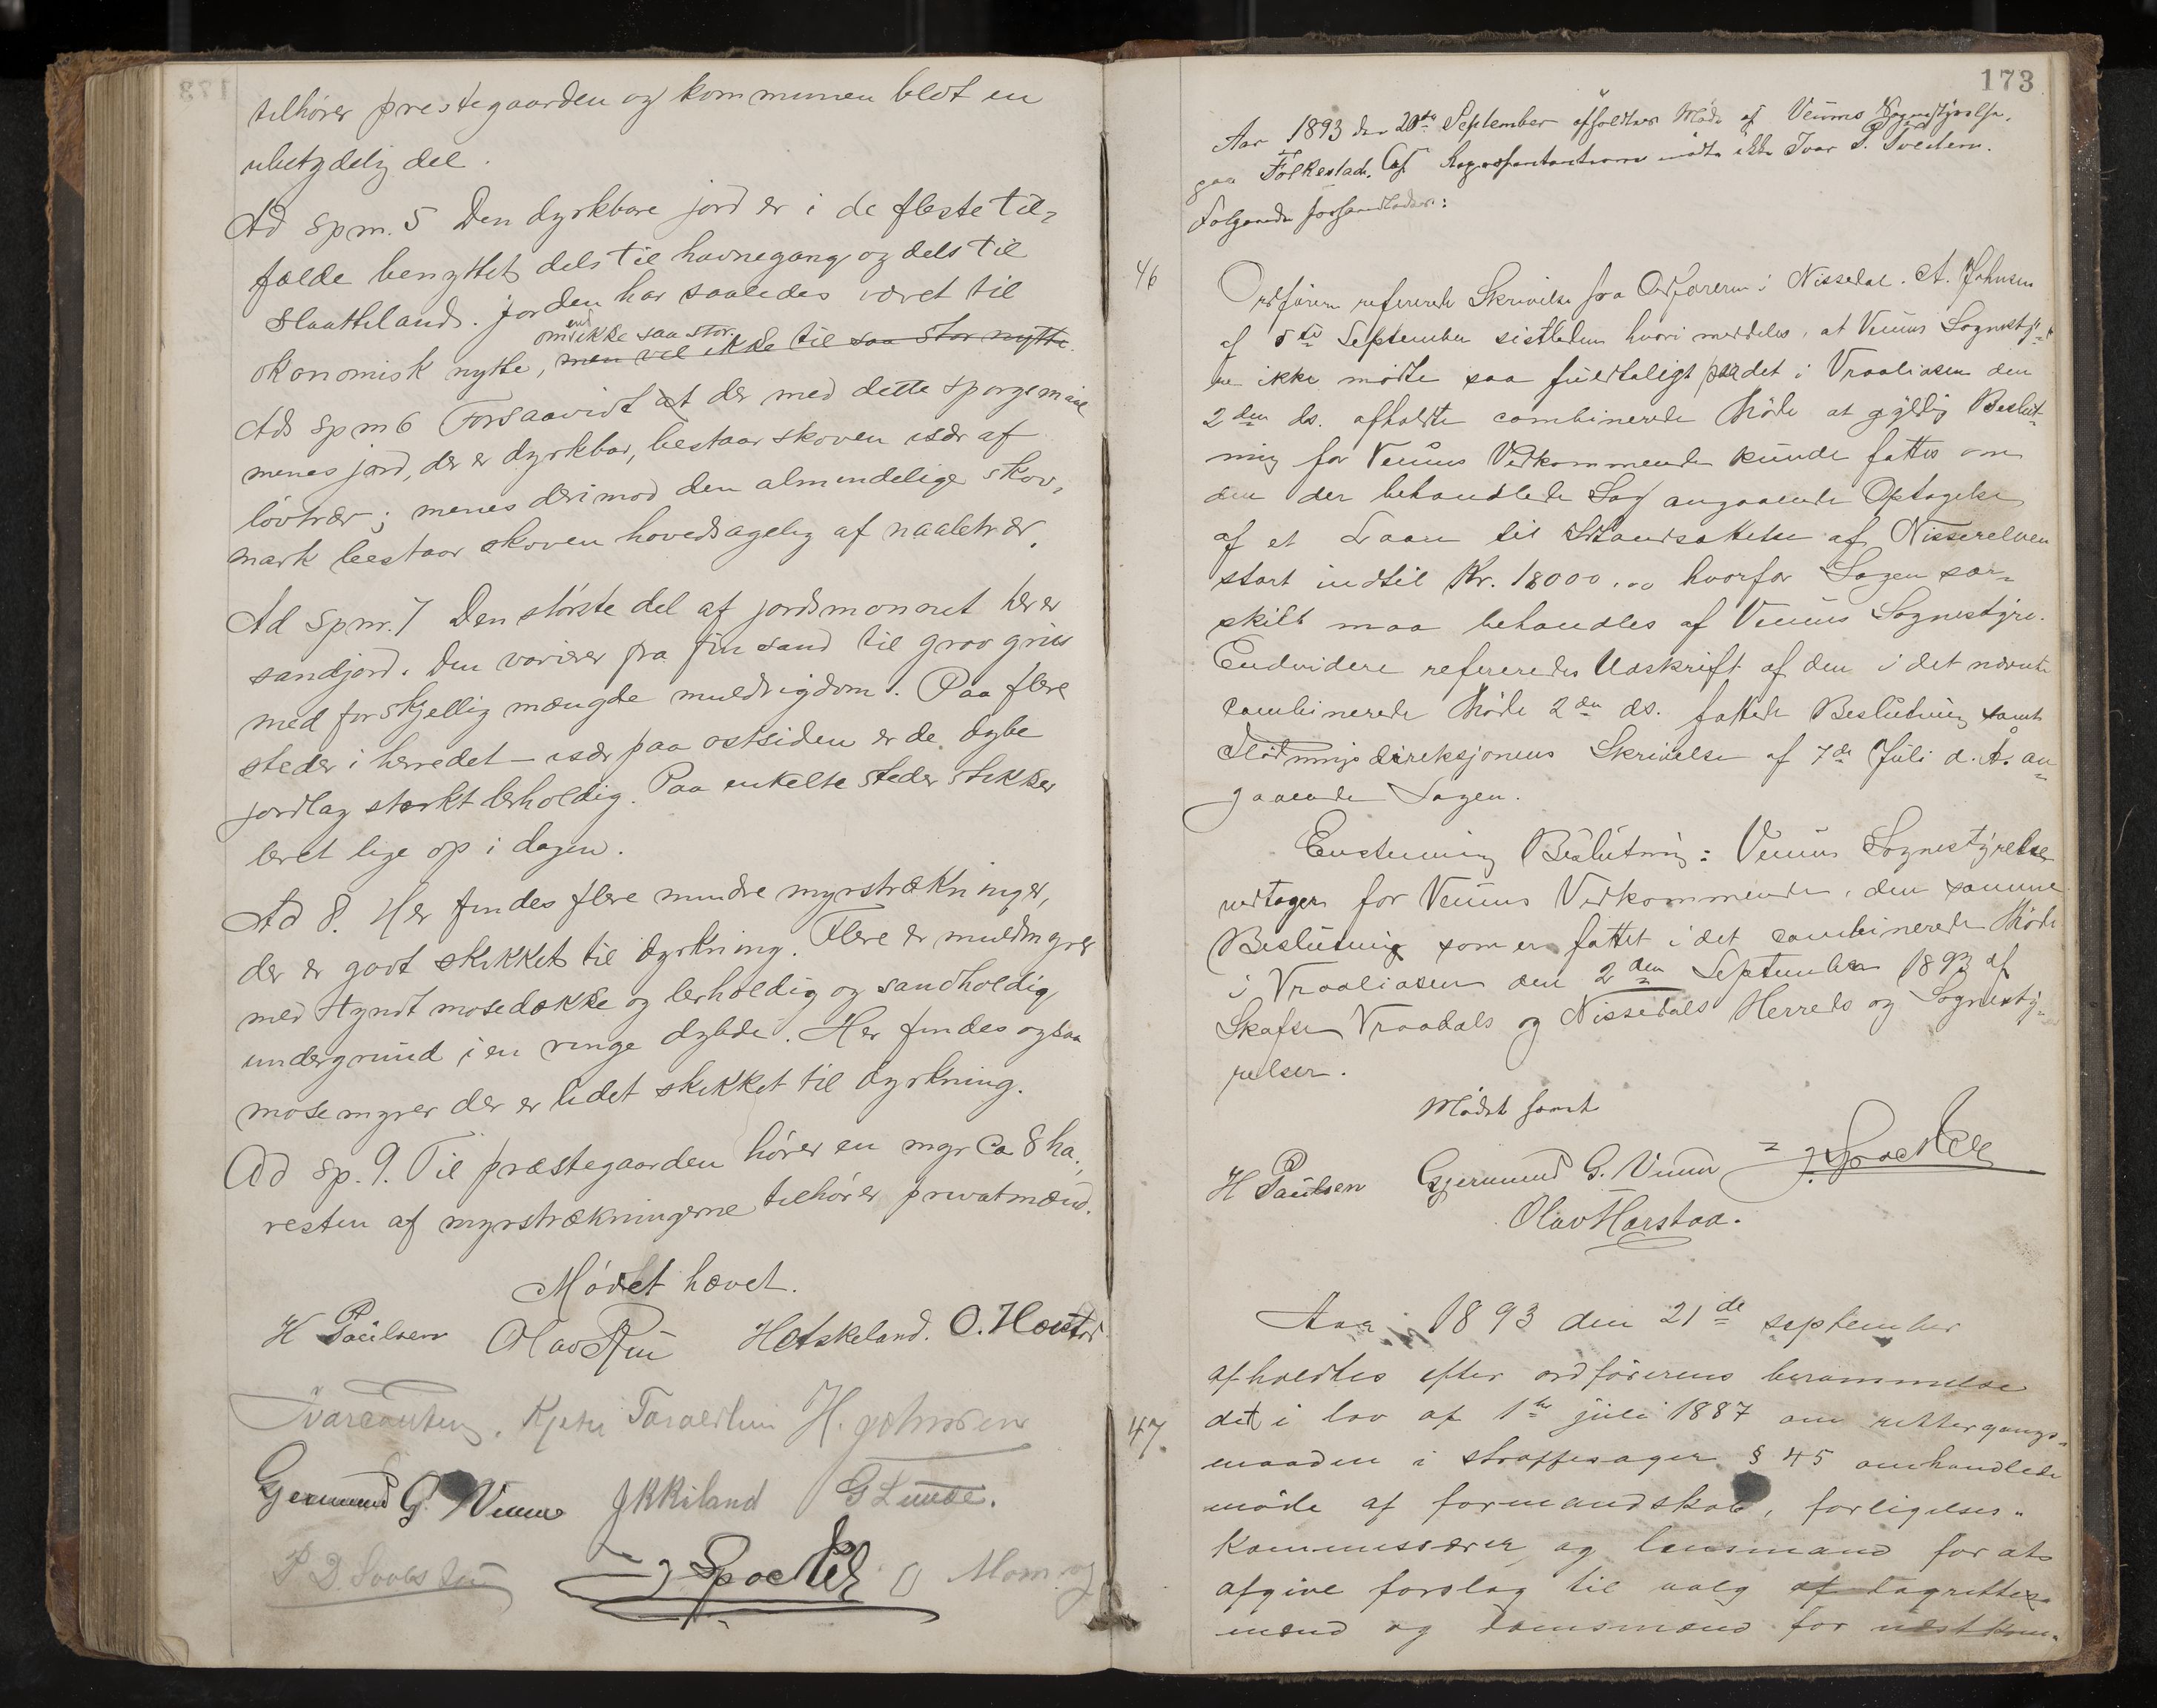 tilhører prestegaarden og kommunen blot en
ubetydelig del.
Ad spm. 5 Den dyrkbare jord er i de fleste til-
fælde benyttet dels til havnegang og dels til
Slaatteland. Jorden har saaledes været til
økonomisk nytte, men vel ikke til saa stor nytte.
om end ikke saa stor.
Ad spm 6 Forsaavidt at der med dette spørgsmaal
menes jord, der er dyrkbar, bestaar skoven især af
løvtrær; menes derimod den almindelige skov-
mark bestaar skoven hovedsagelig af naaletrær.
Ad spm. 7 Den største del af jordsmonnet her er
sandjord. Den varierer fra fin sand til grov grus
med forskjellig mængde muldrigdom. Paa flere
steder i herredet – især paa østsiden er de dybe
jordlag stærkt lerholdig. Paa enkelte steder stikker
leret lige op i dagen.
Ad 8. Her findes flere mindre myrstrækninger,
der er godt skikket til dyrkning. Flere er muldmyrer
med tyndt mosedække og lerholdig og sandholdig
undergrund i en ringe dybde. Her findes ogsaa
mosemyrer der er lidet skikket til dyrkning.
Ad sp. 9. Til præstegaarden hører en myr ca 8 ha.,
resten af myrstrækningerne tilhører privatmænd.
Mødet hævet.
H Paulsen Olav Hetskeland. O.
Kjetil H. Johnsen
Gjermund G. Venm J K Kiland G Lunde.
P D.
173
Aar 1893 den 20de September afholdtes Møde af Veums Sognestyrelse,
paa Folkestad. Af Repræsentanterne mødte ikke Ivar T.
Følgende forhandledes:
46
Ordføreren refererede Skrivelse fra Ordføreren i Nissedal A. Johnsen
af 5te September sistleden hvori meddeles, at Veums Sognesty-
re ikke mødte saa fuldtaligt paa det i Vraaliosen den
2den ds. afholdte combinerede Møde at gyldig Beslut-
ning for Veums Vedkommende kunde fattes om
den der behandlede Sag angaaende Optagelse
af et Laan til Istandsættelse af Nisserelven
stort indtil Kr. 18000.00 hvorfor Sagen sær-
skilt maa behandles af Veums Sognestyre.
Endvidere refereredes Udskrift af den i det nævnte
combinerede Møde 2den ds. fattede Beslutning samt
Fløtningsdireksjonens Skrivelse af 7de Juli d. A. an-
gaaende Sagen.
Enstemmig Beslutning: Veums Sognestyrelse
vedtager for Veums Vedkommende, den samme
Beslutning som er fattet i det combinerede Møde
i Vraaliosen den 2den September 1893 af
Skafse Vraadals og Nissedals Herreds og Sognesty-
relser.
Mødet hævet
H Paulsen Gjermund G. Venm
Olav Harstad.
Aar 1893 den 21de september
afholdtes efter ordførerens berammelse
47.
det i lov af 1ste juli 1887 om rettergangs-
maaden i straffesager § 45 omhandlede
møde af formandskab, forligelses-
kommissærer og lensmand for at
afgive forslag til valg af lagrettes-
mænd og domsmænd for næstkom-